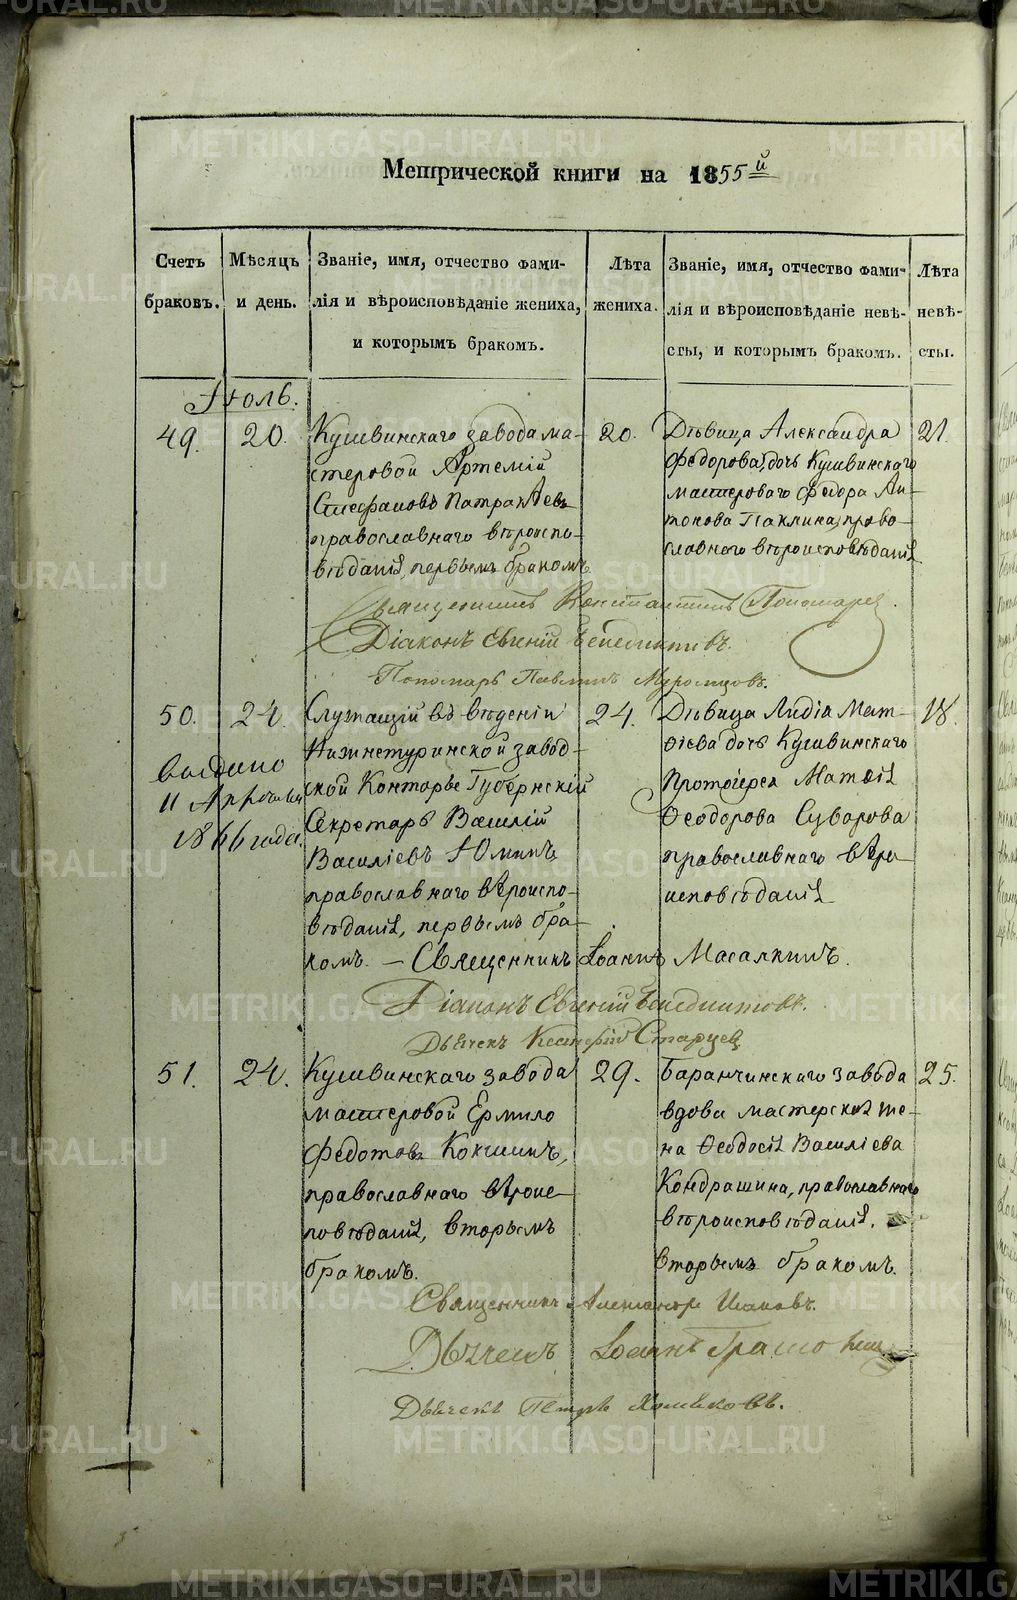 Метрической книги на 1855й
Счетъ браковъ.
Мѣсяцъ и день.
Званіе, имя, отчество фами-
лія и вѣроисповѣданіе жениха,
и которымъ бракомъ.
Лѣта жениха.
Званіе, имя, отчество фами-
лія и вѣроисповѣданіе невѣ-
сты, и которымъ бракомъ.
Лѣта невѣ-
сты.
Іюль.
49. 20.
Кушвинскаго завода ма-
стеровой Артемій
Стефановъ Патракѣевъ
православнаго вѣроиспо-
вѣданія, первымъ бракомъ
20.
Дѣвица Александра
Федорова, дочь Кушвинскаго
мастероваго Федора Ан-
тонова Паклина, право-
славнаго вѣроисповѣданія
21.
Священникъ Константинъ Пономарев.
Діаконъ Евгеній Бенедиктовъ.
Пономарь Павлинъ Муромцовъ.
50. 24.
выдано
11 Апрѣля
1866 года.
Служащій въ вѣденіи
Нижнетуринской завод-
ской Конторы Губернскій
Секретарь Василій
Василіевъ Юминъ,
православнаго вѣроиспо-
вѣданія, первымъ бра-
комъ. –
24.
Дѣвица Лидіа Мат-
ѳіева дочь Кушвинскаго
Протоіерея Матѳія
Ѳеодорова Суворова
православнаго вѣро-
исповѣданія
18.
Священникъ Іоаннъ Масалкинъ.
Діаконъ Евгеній Бенедиктовъ.
Дьячекъ Старцев
51. 24.
Кушвинскаго завода
мастеровой Ермило
Федотовъ Кокшинъ,
православнаго вѣроис-
повѣданія, вторымъ
бракомъ.
29.
Баранчинскаго завода
вдова мастерская же-
на Ѳеодосія Василіева
Кондрашина, православнаго
вѣроисповѣданія,
вторымъ бракомъ.
25.
Священникъ Александръ
Дьячекъ Іоаннъ
Дьячекъ Петръ Хомяковъ.
METRIKI.GASO-URAL.RU